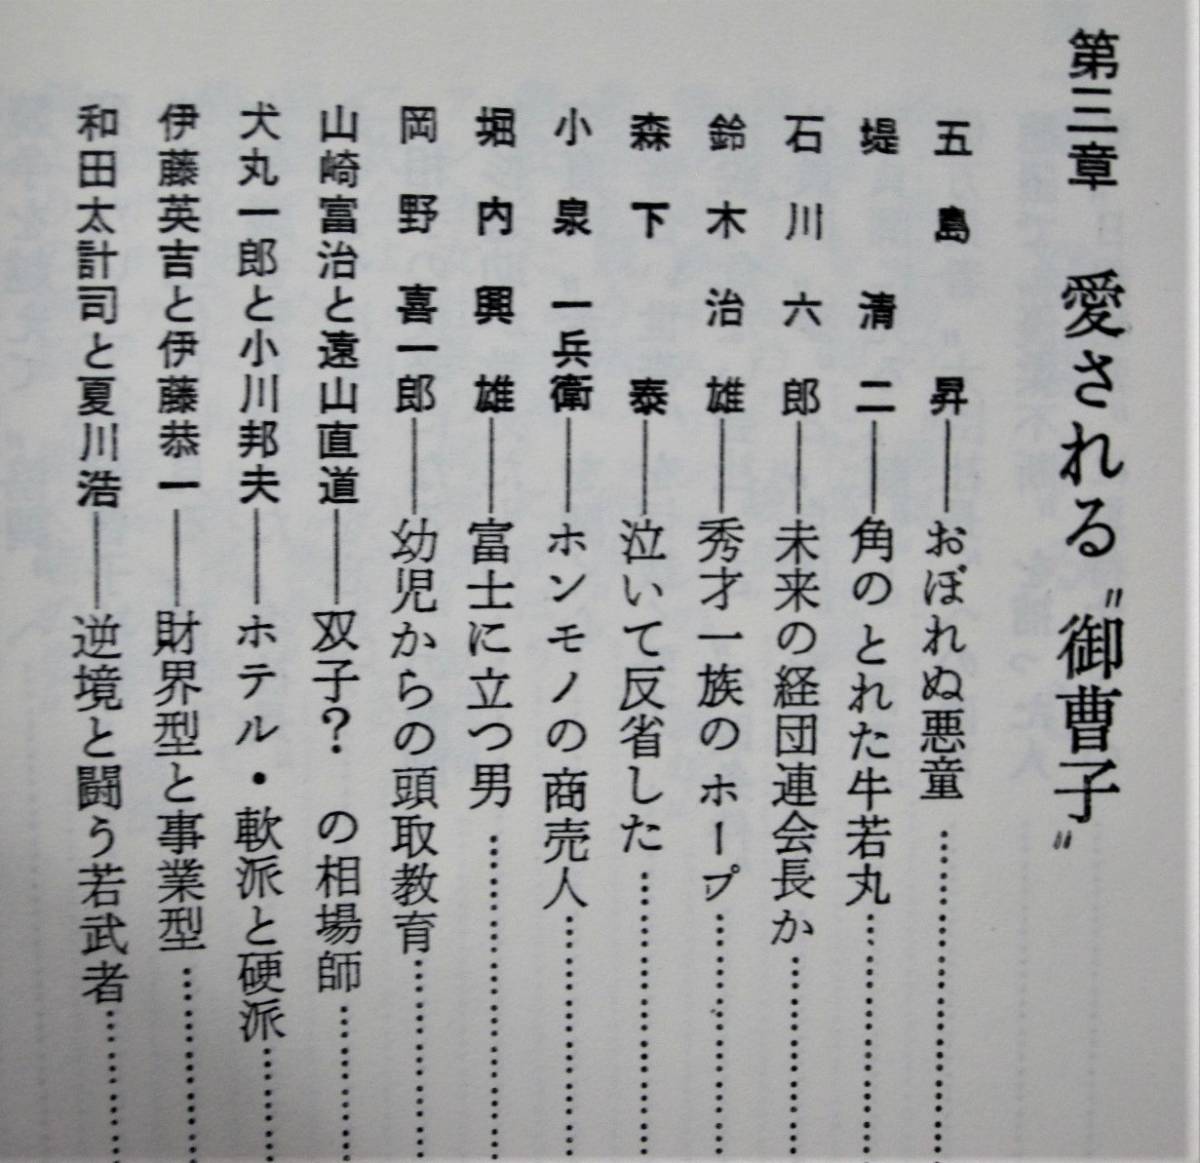 第三章 愛される〝御曹子〟
五島昇――おぼれぬ悪童…………
堤清二――角のとれた牛若丸…………
石川六郎――未来の経団連会長か…………
鈴木治雄――秀才一族のホープ…………
森下泰――泣いて反省した…………
小泉一兵衛――ホンモノの商売人…………
堀内興雄――富士に立つ男…………
岡野喜一郎――幼児からの頭取教育…………
山崎富治と遠山直道――双子? の相場師…………
犬丸一郎と小川邦夫――ホテル・軟派と硬派…………
伊藤英吉と伊藤恭一――財界型と事業型…………
和田太計司と夏川浩――逆境と闘う若武者…………